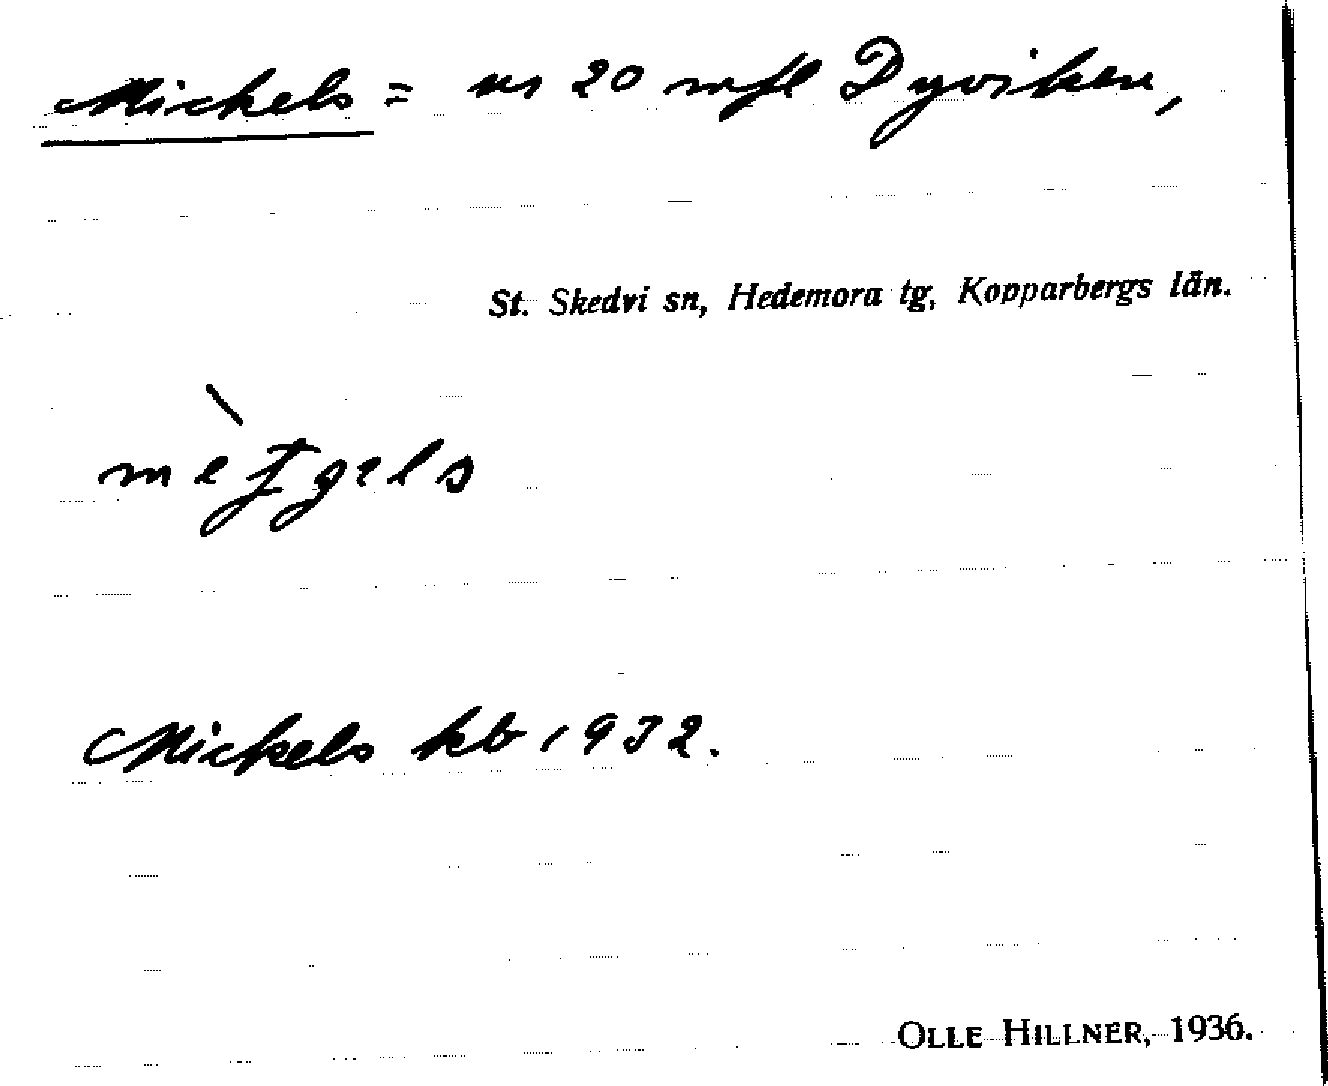 Mickels = nr 20 mfl Dyviken,
St. Skedvi sn, Hedemora tg, Kopparbergs län.
Mickels kb 1932.
OLLE HILLNER, 1936.